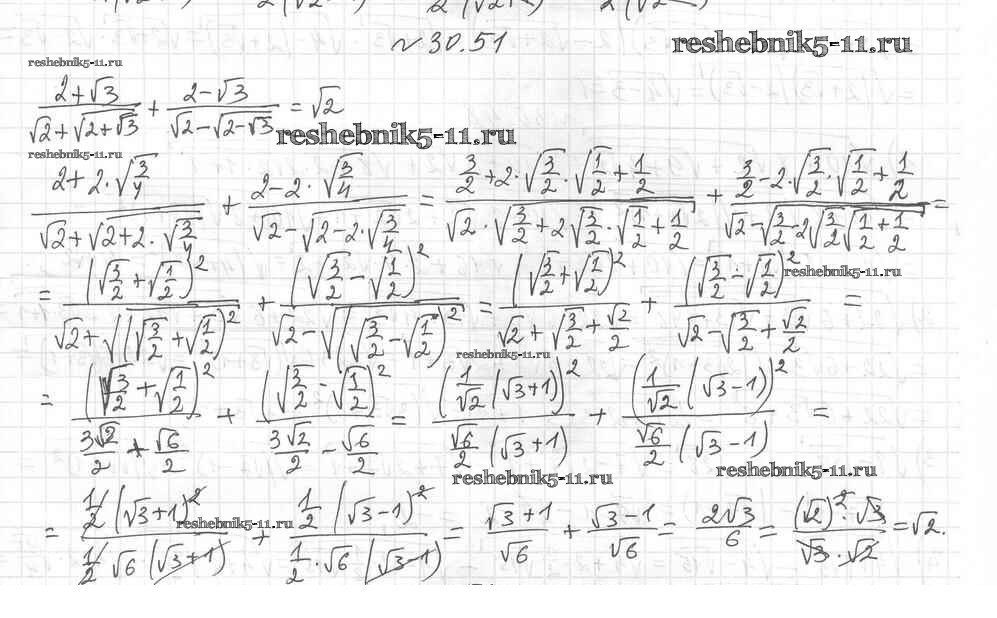 № 30.51
reshebnik5-11.ru
reshebnik5-11.ru
(2+√3)/(√2+√(2+√3)) + (2-√3)/(√2-√(2-√3)) = √2
reshebnik5-11.ru
reshebnik5-11.ru
(2+2·√(3/4))/(√2+√(2+2·√(3/4))) + (2-2·√(3/4))/(√2-√(2-2·√(3/4))) = (3/2+2·√(3/2)·√(1/2)+1/2)/(√2·√(3/2+2√(3/2)·√(1/2)+1/2)) + (3/2-2·√(3/2)·√(1/2)+1/2)/(√2-√(3/2-2√(3/2)√(1/2)+1/2)) =
reshebnik5-11.ru
= (√(3/2)+√(1/2))²/(√2+√((√(3/2)+√(1/2))²)) + (√(3/2)-√(1/2))²/(√2-√((√(3/2)-√(1/2))²)) = (√(3/2)+√(1/2))²/(√2+√(3/2)+√2/2) + (√(3/2)-√(1/2))²/(√2-√(3/2)+√2/2) =
reshebnik5-11.ru
= (√(3/2)+√(1/2))²/(3√2/2+√6/2) + (√(3/2)-√(1/2))²/(3√2/2-√6/2) = (1/√2(√3+1))²/(√6/2(√3+1)) + (1/√2(√3-1))²/(√6/2(√3-1)) =
reshebnik5-11.ru
reshebnik5-11.ru
= (1/2(√3+1)²)/(1/2√6(√3+1)) + (1/2(√3-1)²)/(1/2·√6(√3-1)) = (√3+1)/√6 + (√3-1)/√6 = 2√3/6 = ((√2)²·√3)/(√3·√2) = √2.
reshebnik5-11.ru